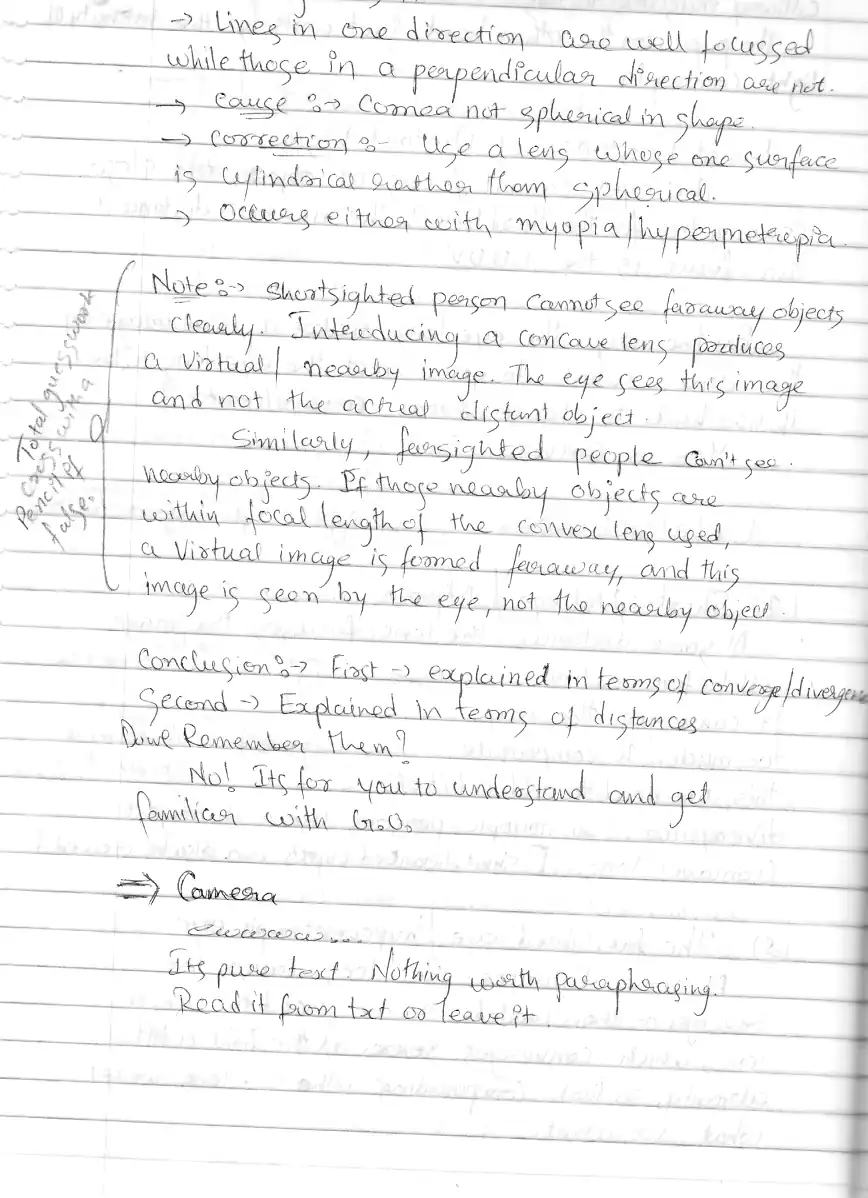 → Lines in one direction are well focussed
while those in a perpendicular direction are not.
→ Cause :→ Cornea not spherical in shape.
→ Correction :- Use a lens whose one surface
is cylindrical rather than spherical.
→ Occurs either with myopia/hypermetropia.
Note :→ Shortsighted person cannot see faraway objects
clearly. Introducing a concave lens produces
a virtual/ nearby image. The eye sees this image
and not the actual distant object.
Similarly, farsighted people can't see
nearby objects. If those nearby objects are
within focal length of the convex lens used,
a virtual image is formed faraway, and this
image is seen by the eye, not the nearby object.
Total guesswork
Cross with a
Pencil if
false.
Conclusion :→ First → explained in terms of converge/divergence
Second → Explained in terms of distances
Do we Remember them?
No! Its for you to understand and get
familiar with G.O.
⇒ Camera
Its pure text. Nothing worth paraphrasing.
Read it from txt or leave it.